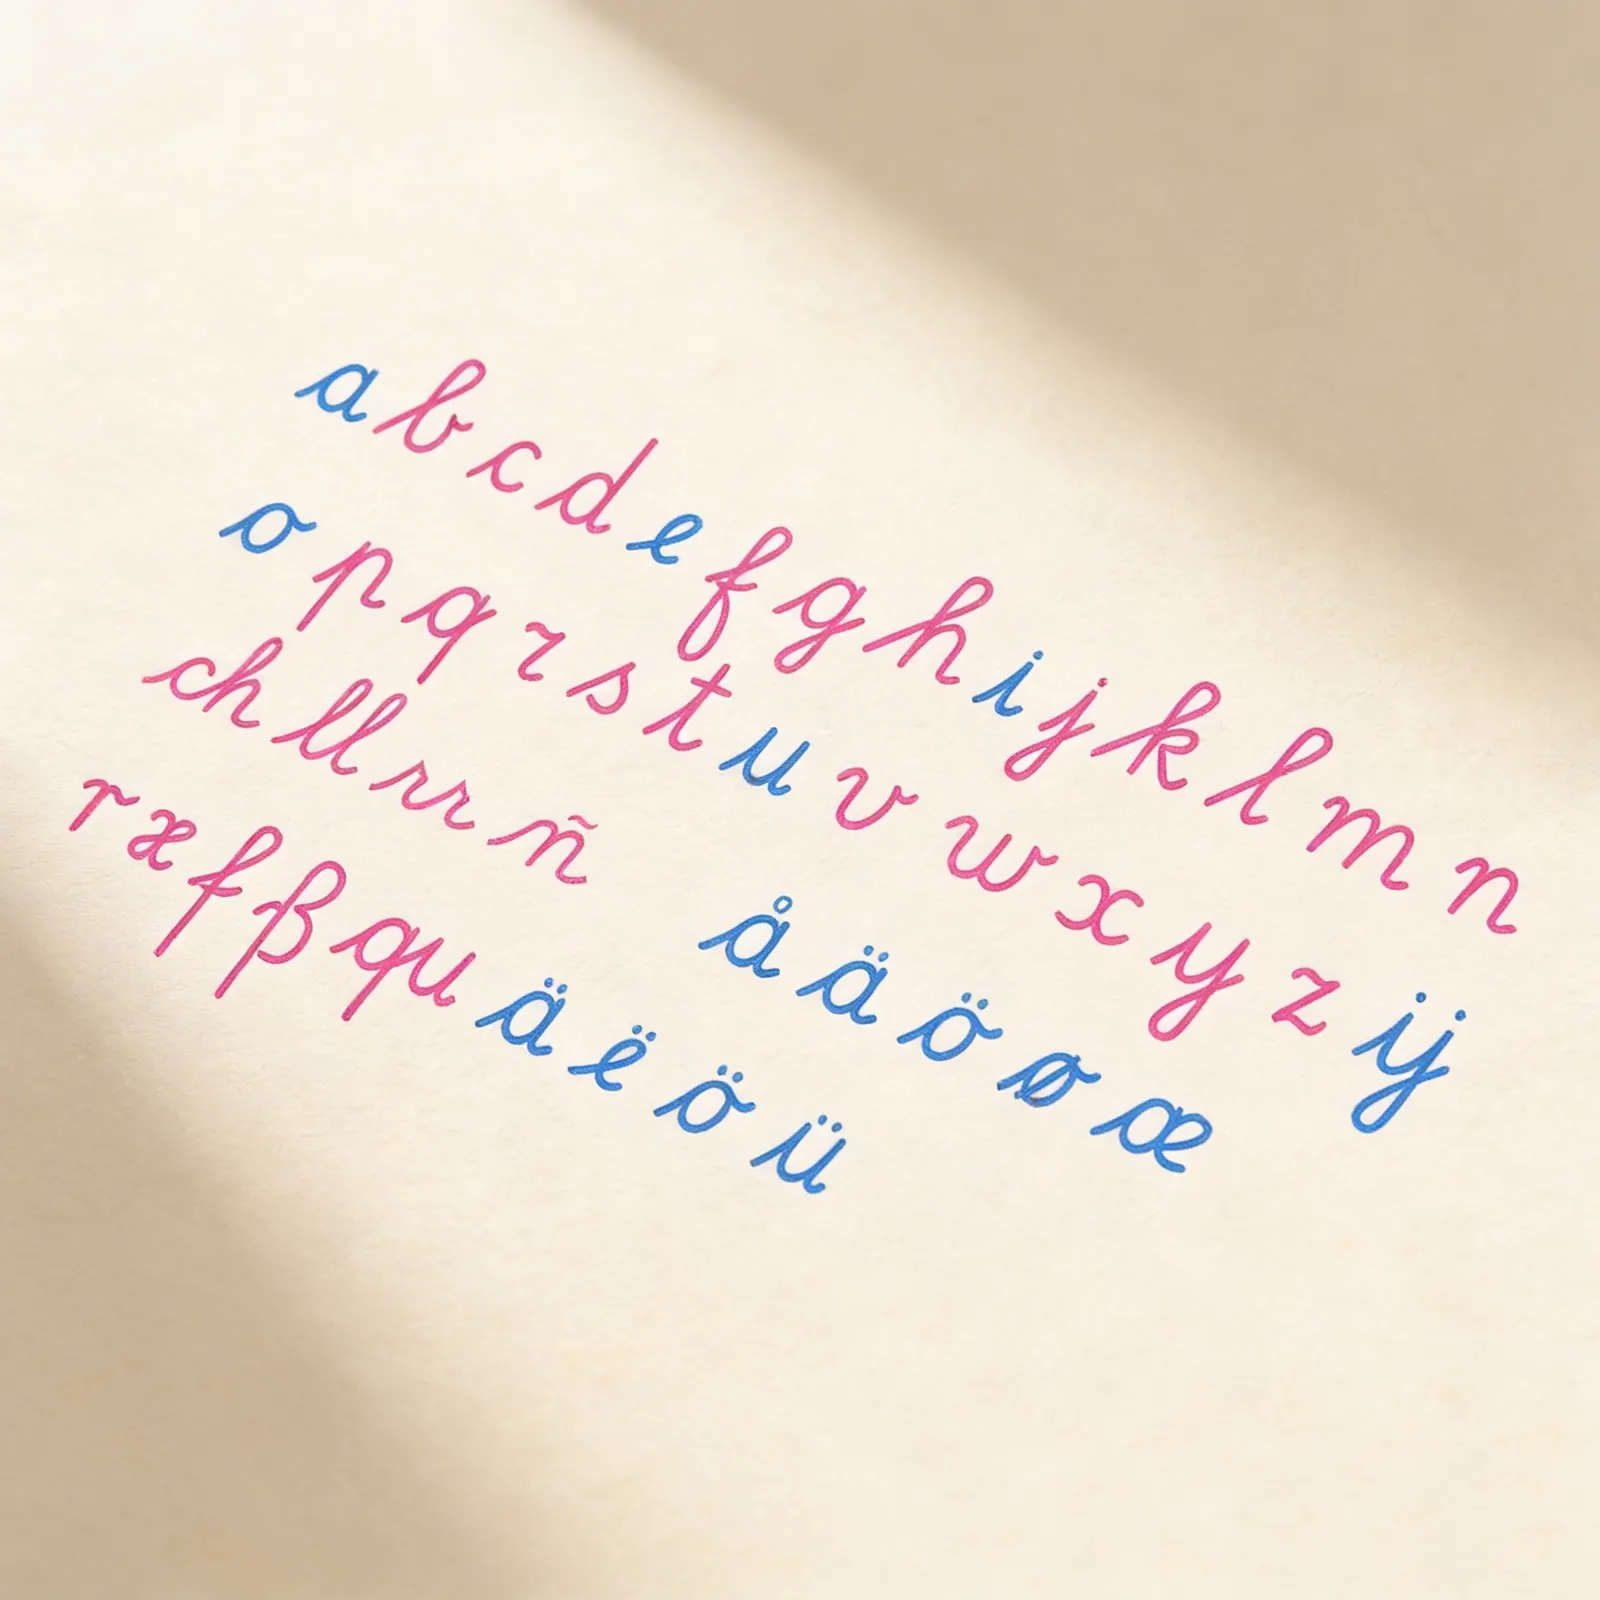 a b c d e f g h i j k l m n
o p q r s t u v w x y z ij
ch ll rr ñ å ä ö ø æ
r x f ß qu ä ë ö ü